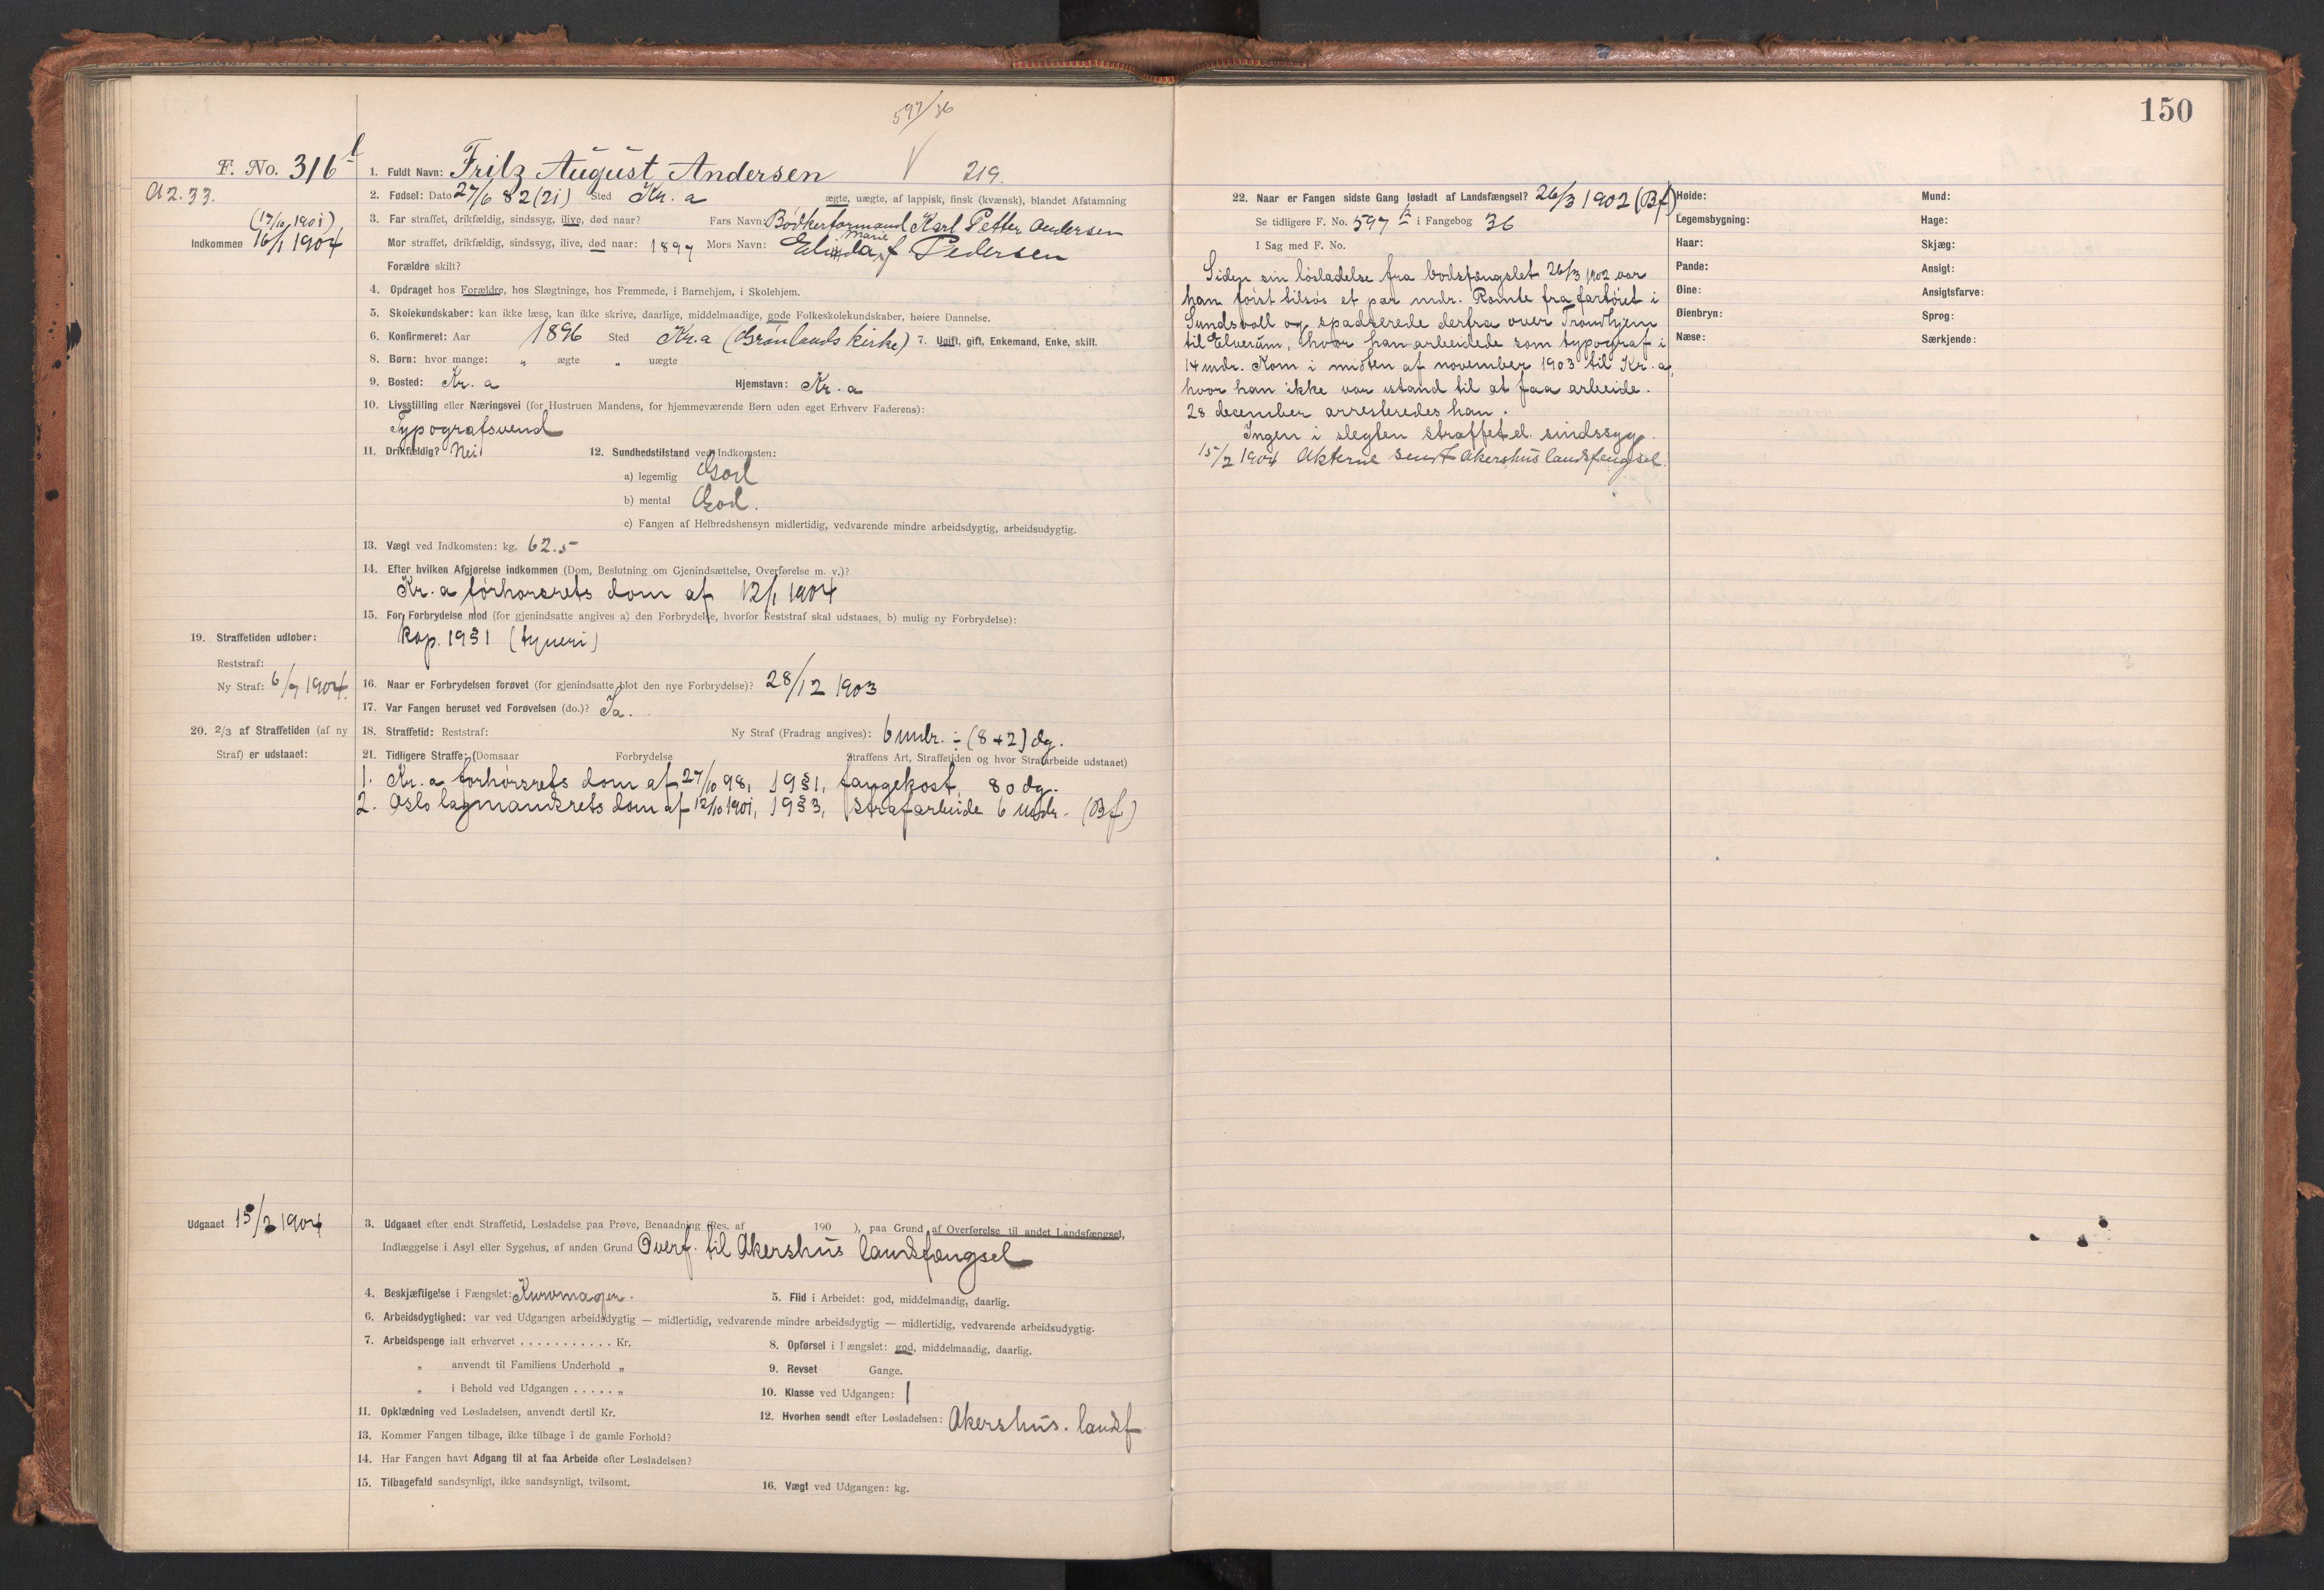 597/36
150
F. No. 316
A2.33.
1. Fuldt Navn: Fritz August Andersen
219.
2. Fødsel: Dato 27/6 82 (21) Sted Kr.a ægte, uægte, af lappisk, finsk (kvænsk), blandet Afstamning
(17/10 1901)
Indkommen 16/1 1904
3. Far straffet, drikfældig, sindssyg, ilive, død naar? Fars Navn: Bødkerformand Karl Petter Andersen
Mor straffet, drikfældig, sindssyg, ilive, død naar: 1897 Mors Navn: Marie f. Pedersen
Forældre skilt?
4. Opdraget hos Forældre, hos Slægtninge, hos Fremmede, i Barnehjem, i Skolehjem.
5. Skolekundskaber: kan ikke læse, kan ikke skrive, daarlige, middelmaadige, gode Folkeskolekundskaber, høiere Dannelse.
6. Konfirmeret: Aar 1896 Sted Kr.a (Grønlands kirke) 7. Ugift, gift, Enkemand, Enke, skilt.
8. Børn: hvor mange: „ ægte „ uægte
9. Bosted: Kr.a Hjemstavn: Kr.a
10. Livsstilling eller Næringsvei (for Hustruen Mandens, for hjemmeværende Børn uden eget Erhverv Faderens):
Typografsvend
11. Drikfældig? Nei 12. Sundhedstilstand ved Indkomsten:
a) legemlig God
b) mental God.
c) Fangen af Helbredshensyn midlertidig, vedvarende mindre arbeidsdygtig, arbeidsudygtig.
13. Vægt ved Indkomsten: kg. 62.5
14. Efter hvilken Afgjørelse indkommen (Dom, Beslutning om Gjenindsættelse, Overførelse m. v.)?
Kr.a forhørsrets dom af 12/1 1904
15. For Forbrydelse mod (for gjenindsatte angives a) den Forbrydelse, hvorfor Reststraf skal udstaaes, b) mulig ny Forbrydelse):
Kap. 19 § 1 (tyveri)
19. Straffetiden udløber:
Reststraf:
Ny Straf: 6/7 1904.
16. Naar er Forbrydelsen forøvet (for gjenindsatte blot den nye Forbrydelse)? 28/12 1903
17. Var Fangen beruset ved Forøvelsen (do.)? Ja.
20. 2/3 af Straffetiden (af ny
Straf) er udstaaet:
18. Straffetid: Reststraf: Ny Straf (Fradrag angives): 6 mdr. ÷ (8+2) dg.
21. Tidligere Straffe: (Domsaar Forbrydelse Straffens Art, Straffetiden og hvor Strafarbeide udstaaet)
1. Kr.a forhørsrets dom af 27/10 98, 19 § 1, fangekost, 80 dg.
2. Oslo lagmandsrets dom af 12/10 1901, 19 § 3, strafarbeide 6 mdr. (Bf)
Udgaaet 15/2 1904
3. Udgaaet efter endt Straffetid, Løsladelse paa Prøve, Benaadning (Res. af 190 ), paa Grund af Overførelse til andet Landsfængsel,
Indlæggelse i Asyl eller Sygehus, af anden Grund Overf. til Akershus landsfængsel
4. Beskjæftigelse i Fængslet: Kurvmager.
5. Flid i Arbeidet: god, middelmaadig, daarlig.
6. Arbeidsdygtighed: var ved Udgangen arbeidsdygtig — midlertidig, vedvarende mindre arbeidsdygtig — midlertidig, vedvarende arbeidsudygtig.
7. Arbeidspenge ialt erhvervet . . . . . . . . . . . Kr.
8. Opførsel i Fængslet: god, middelmaadig, daarlig.
„ anvendt til Familiens Underhold „
9. Revset Gange.
„ i Behold ved Udgangen . . . . . „
10. Klasse ved Udgangen: 1
11. Opklædning ved Løsladelsen, anvendt dertil Kr.
12. Hvorhen sendt efter Løsladelsen: Akershus. landsf
13. Kommer Fangen tilbage, ikke tilbage i de gamle Forhold?
14. Har Fangen havt Adgang til at faa Arbeide efter Løsladelsen?
15. Tilbagefald sandsynligt, ikke sandsynligt, tvilsomt.
16. Vægt ved Udgangen: kg.
22. Naar er Fangen sidste Gang løsladt af Landsfængsel? 26/3 1902 (Bf)
Se tidligere F. No. 597 i Fangebog 36
I Sag med F. No.
Siden sin løsladelse fra bodsfængslet 26/3 1902 var
han først tilsøs et par mdr. Rømte fra fartøiet i
Sundsvall og spadserede derfra over Trondhjem
til Elverum, hvor han arbeidede som typograf i
14 mdr. Kom i midten af november 1903 til Kr.a,
hvor han ikke var istand til at faa arbeide.
28 december arresteredes han.
Ingen i slegten straffet el. sindssyg.
15/2 1904 Akterne sendt Akershus landsfængsel.
Høide:
Legemsbygning:
Haar:
Pande:
Øine:
Øienbryn:
Næse:
Mund:
Hage:
Skjæg:
Ansigt:
Ansigtsfarve:
Sprog:
Særkjende: